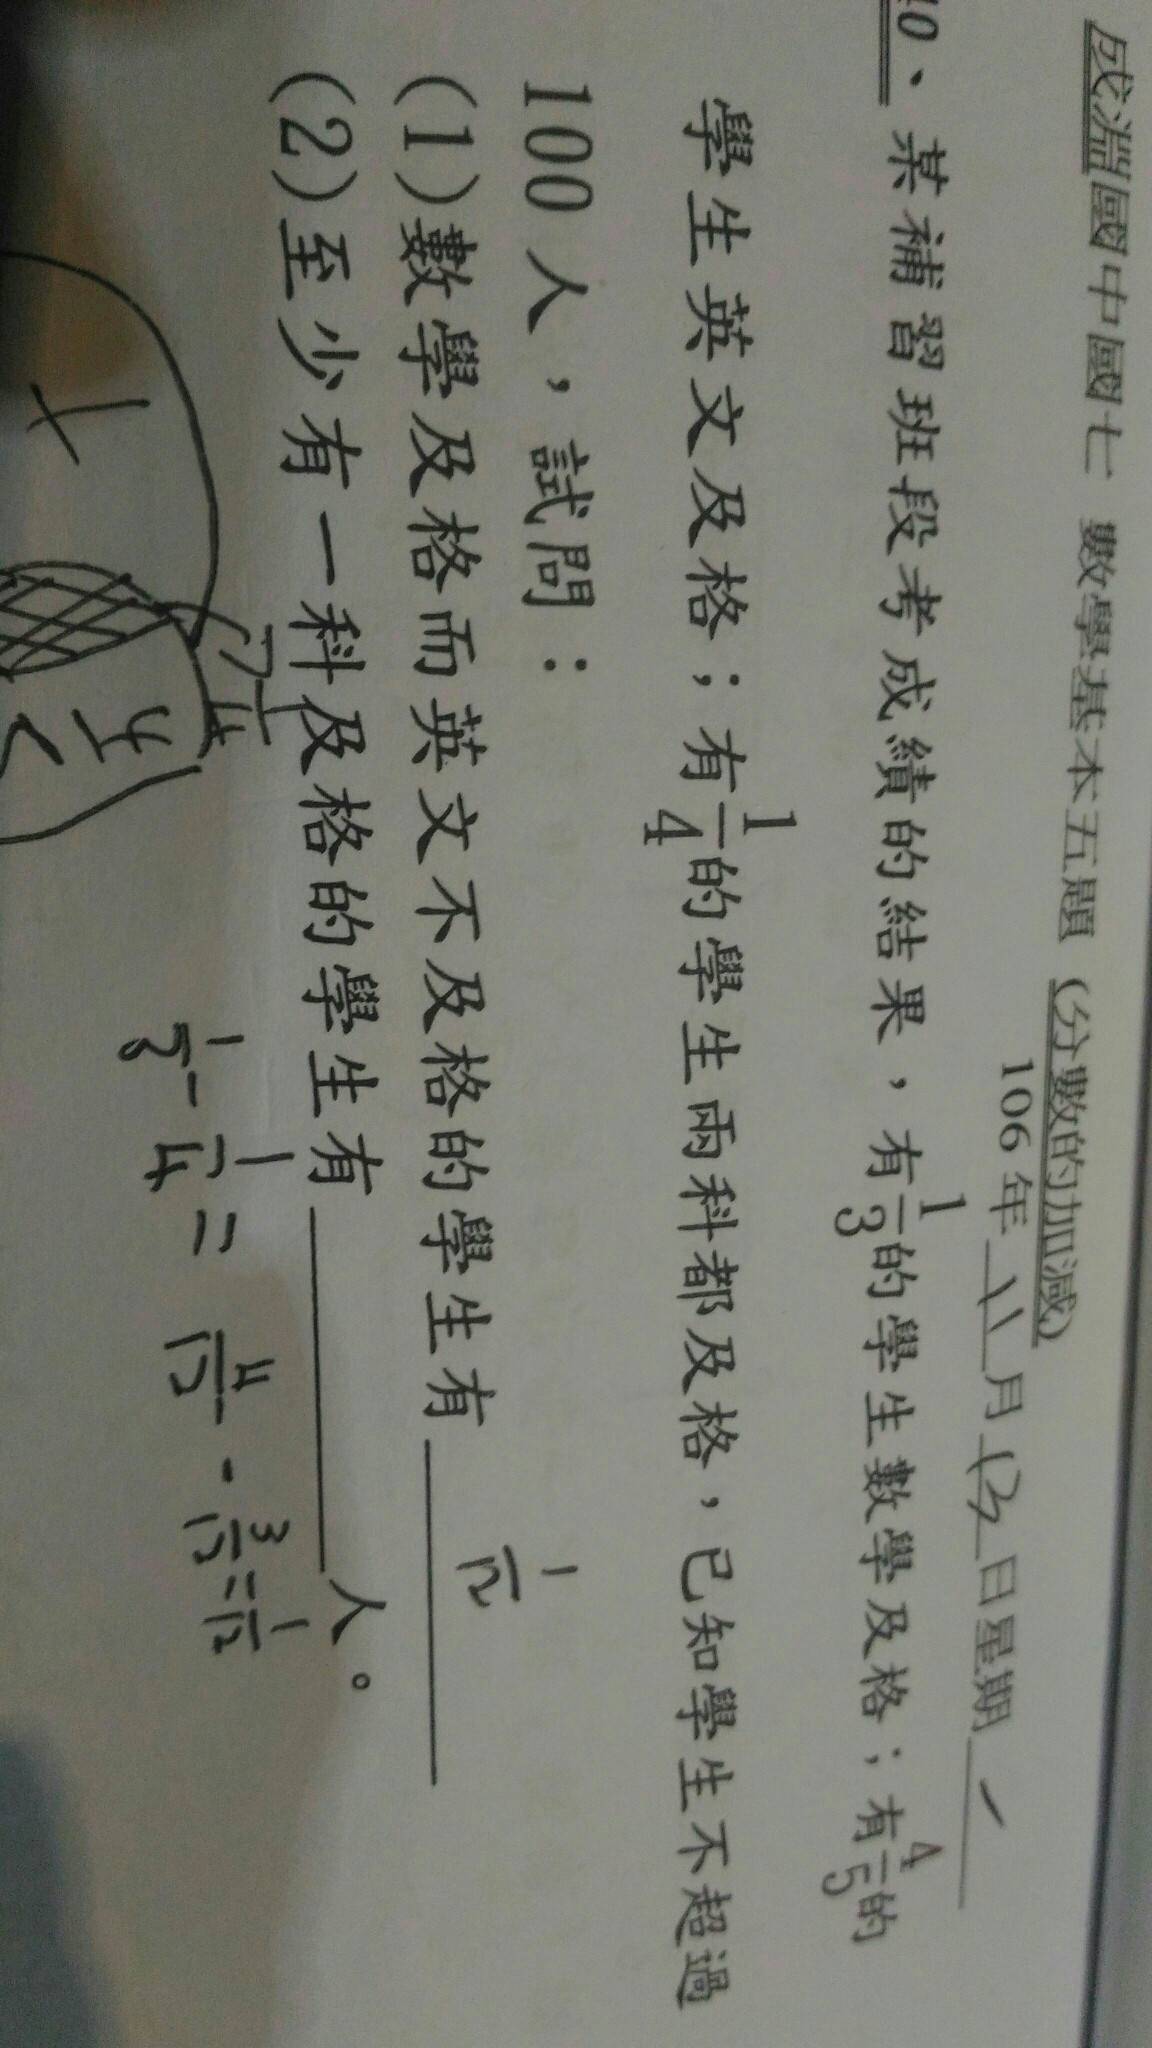 成淵國中國七 數學基本五題（分數的加減）
106年11月13日星期一
40、某補習班段考成績的結果，有1/3的學生數學及格；有4/5的
學生英文及格；有1/4的學生兩科都及格，已知學生不超過
100人，試問：
(1)數學及格而英文不及格的學生有 1/12
(2)至少有一科及格的學生有＿＿＿人。
1/3 - 1/4 = 4/12 - 3/12 = 1/12
1/4
4/5